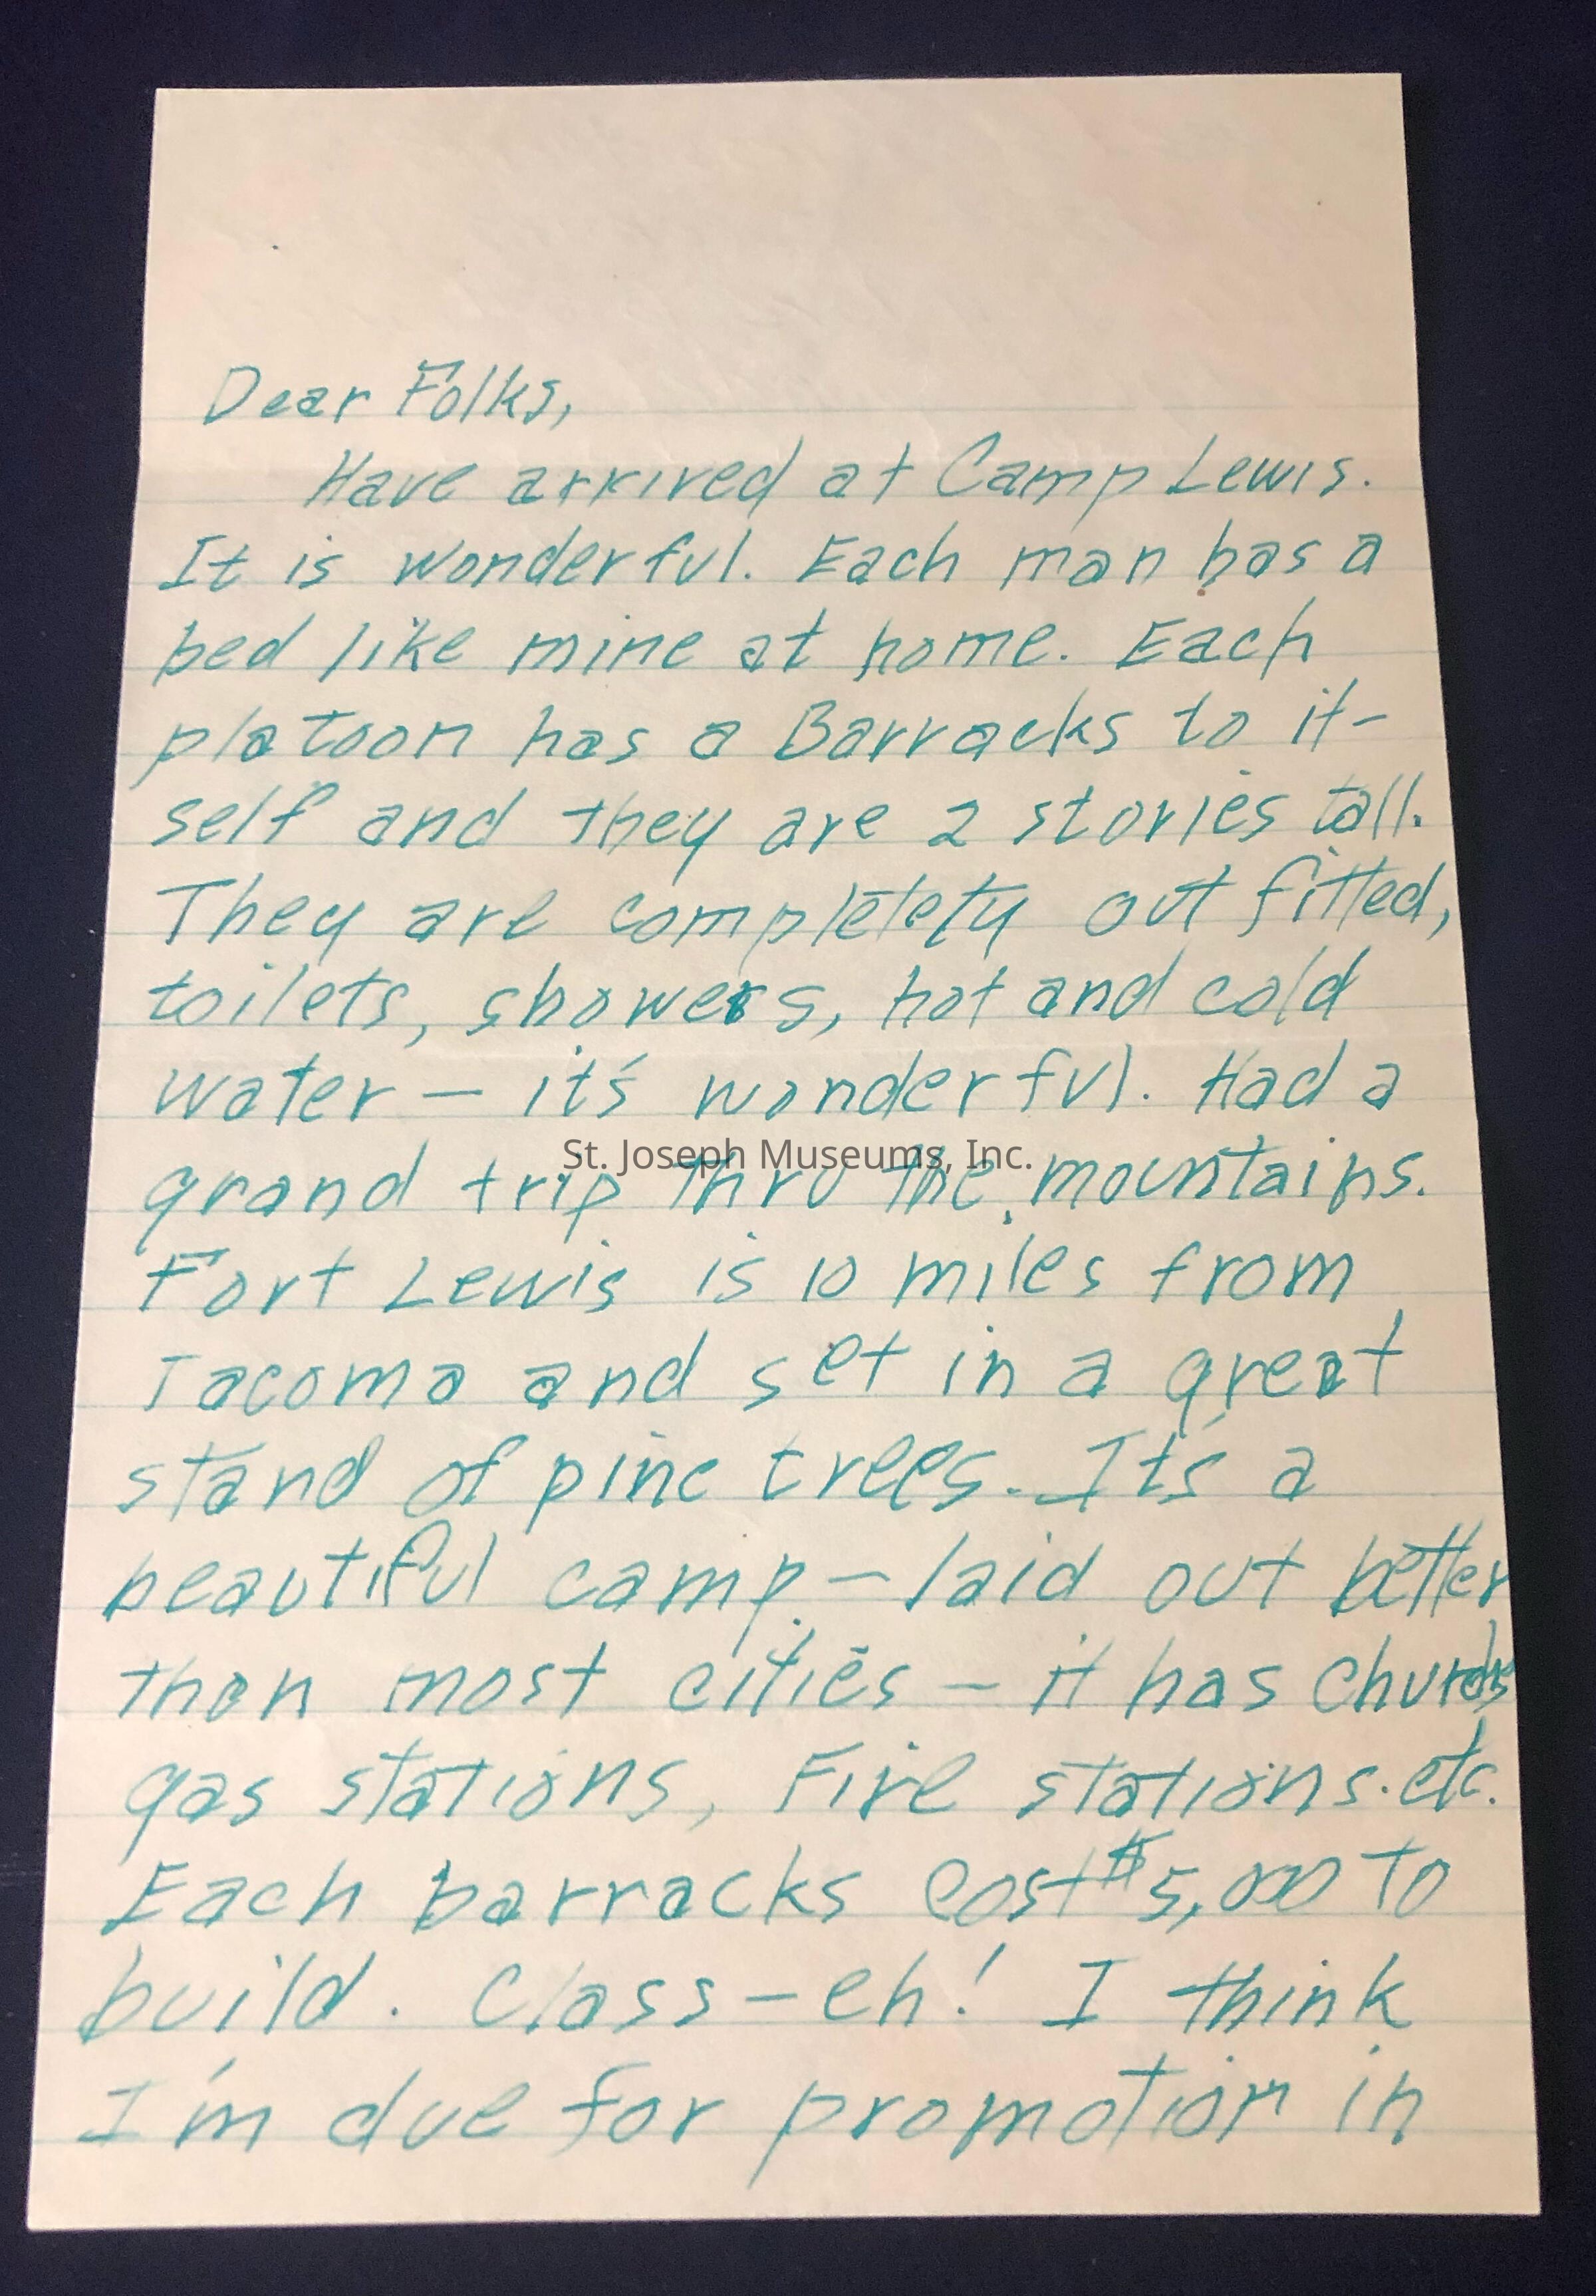 Dear Folks,
Have arrived at Camp Lewis.
It is wonderful. Each man has a
bed like mine at home. Each
platoon has a Barracks to it-
self and they are 2 stories tall.
They are completety out fitted,
toilets, showers, hot and cold
water — it's wonderful. Had a
St. Joseph Museums, Inc.
grand trip thru the mountains.
Fort Lewis is 10 miles from
Tacoma and set in a great
stand of pine trees. It's a
beautiful camp — laid out better
than most cities — it has
gas stations, Fire stations. etc.
Each barracks cost $5,000 to
build. Class — eh! I think
I'm due for promotion in